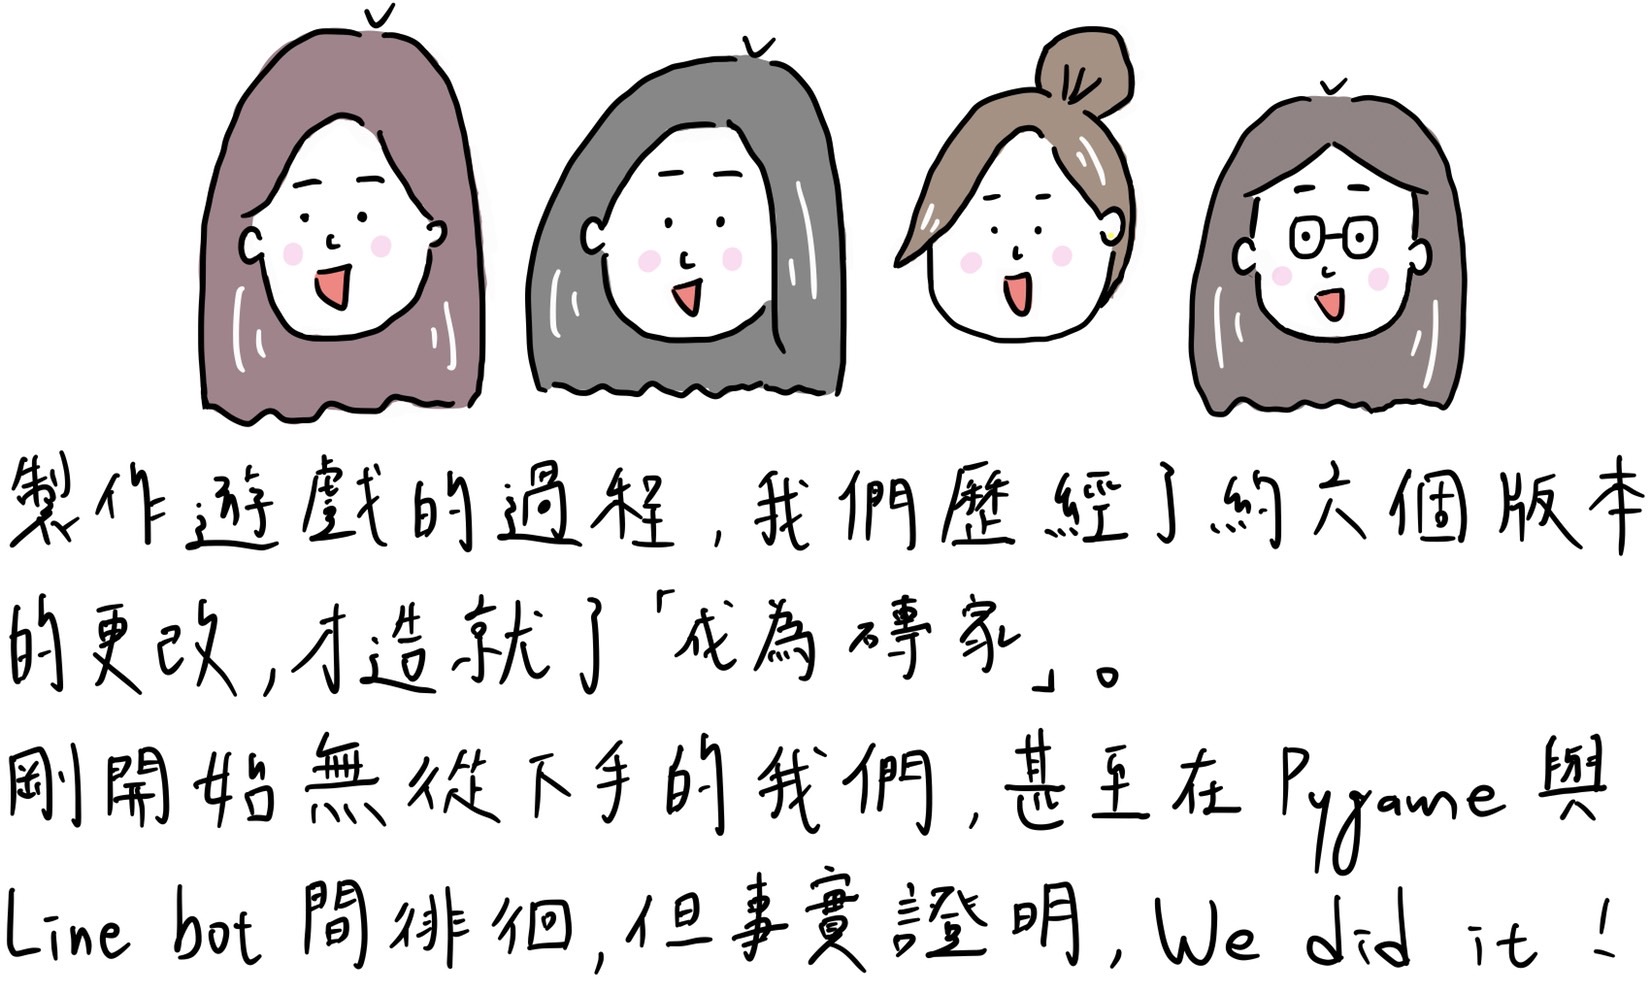 製作遊戲的過程,我們歷經了約六個版本
的更改,才造就了「成為磚家」。
剛開始無從下手的我們,甚至在 Pygame 與
Line bot 間徘徊,但事實證明,We did it!